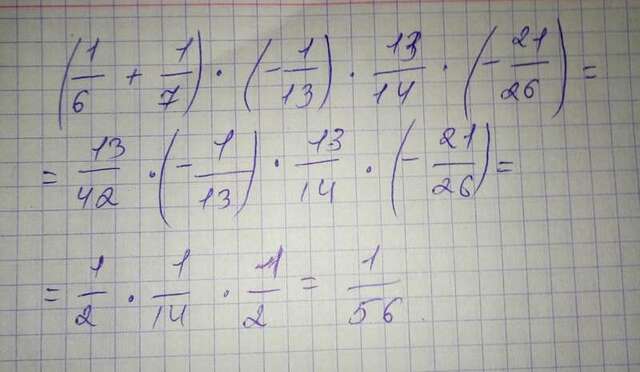 (1/6 + 1/7) · (-1/13) · 13/14 · (-21/26) =
= 13/42 · (-1/13) · 13/14 · (-21/26) =
= 1/2 · 1/14 · 1/2 = 1/56